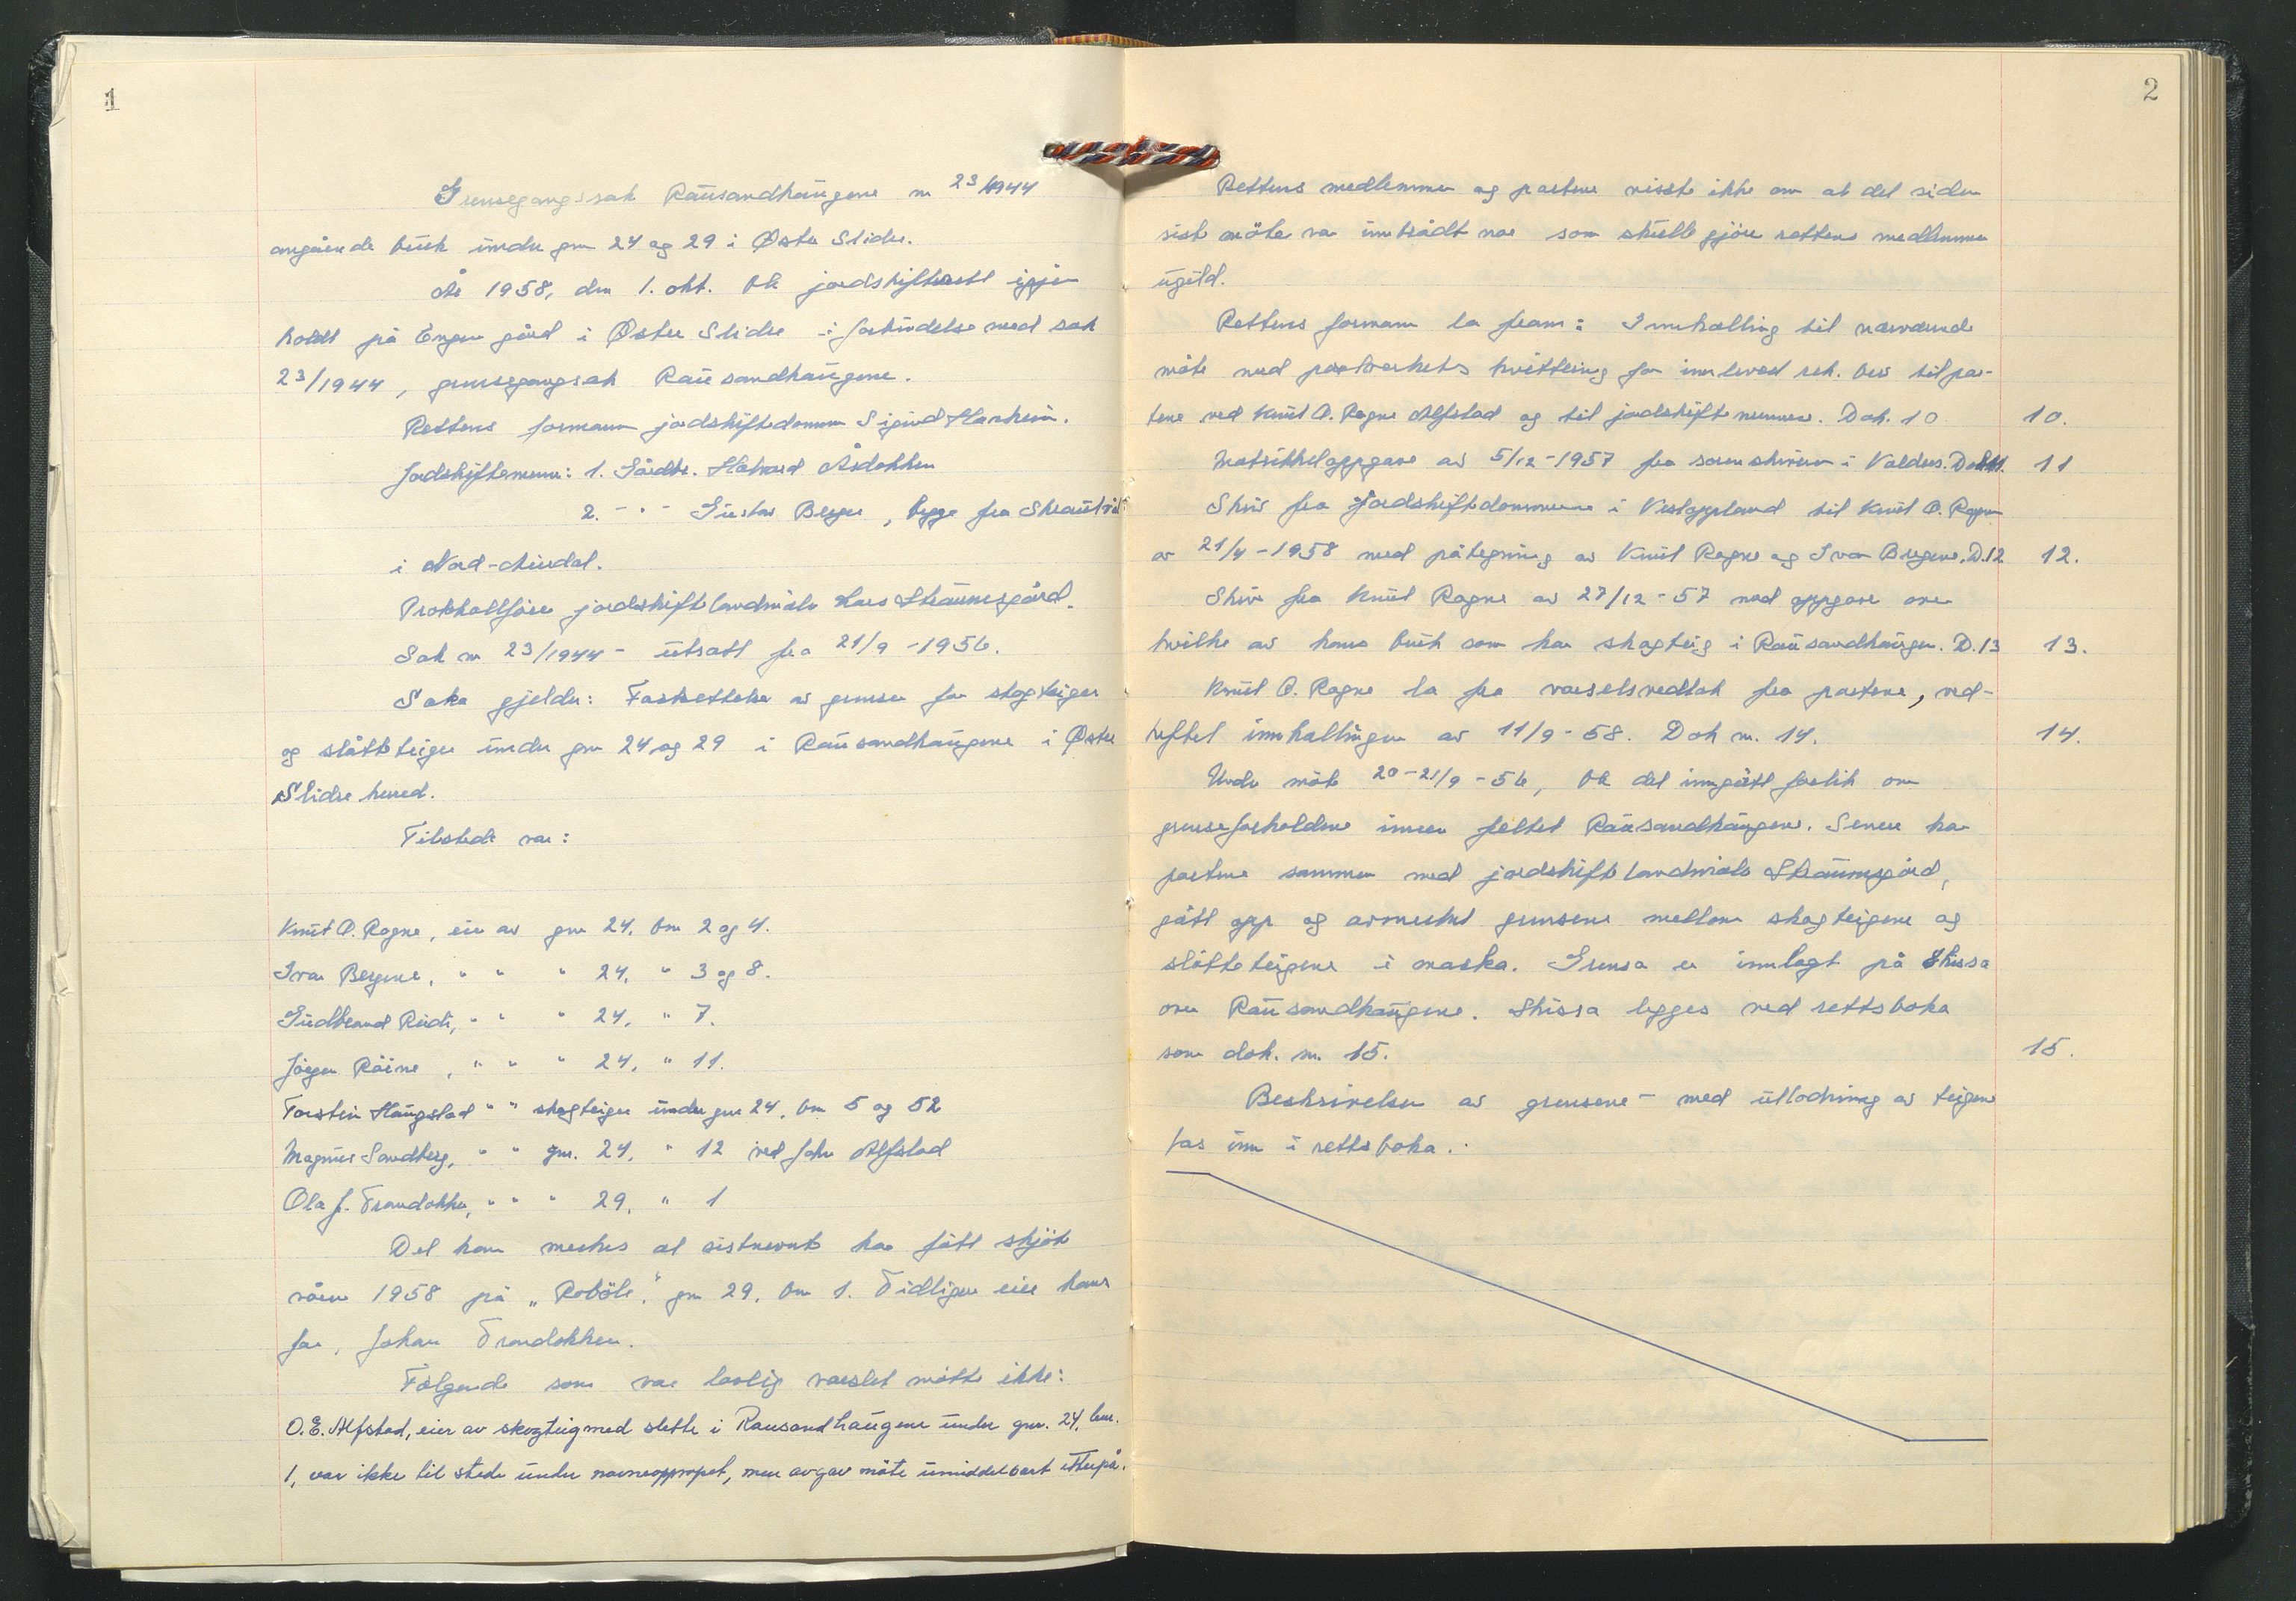 1
Grensegangssak Rausandhaugene nr 23/1944
angående bruk under gnr 24 og 29 i Øster Slidre.
År 1958, den 1. okt. ble jordskifterett igjen
holdt på Engen gård i Øster Slidre i forbindelse med sak
23/1944, grensegangsak Rausandhaugene.
Rettens formann jordskiftedommer Sigurd Harheim.
Jordskiftemenn: 1. Gårdbr. Halvard Åsdokken
2. - " - Gustav Berge, begge fra Skrautvål
i Nord-Aurdal.
Protokollfører jordskiftelandmåler Hans Straumsgård.
Sak nr 23/1944 - utsatt fra 21/9 - 1956.
Saka gjelder: Fastsettelse av grenser for skogteiger
og slåtteteiger under gnr 24 og 29 i Rausandhaugene i Øster
Slidre herred.
Tilstede var:
Knut O. Rogne, eier av gnr 24, bnr 2 og 4.
Ivar Bergene, " " " 24, " 3 og 8.
Gudbrand Rudi, " " " 24, " 7.
Jörgen Röine, " " " 24, " 11.
Torstein Haugstad " " skogteiger under gnr 24, bnr 5 og 52
Magnus Sandberg, " " gnr. 24, " 12 ved John Alfstad
Ola J. Trondokken, " " " 29, " 1
Det kan merkes at sistnevnte har fått skjöte
våren 1958 på „Raböle", gnr 29, bnr 1. Tidligere eier hans
far, Johan Trondokken.
Følgende som var lovlig varslet møtte ikke:
O. E. Alfstad, eier av skogteig med slette i Rausandhaugene under gnr. 24, bnr.
1, var ikke til stede under navneoppropet, men avgav möte umiddelbart etterpå.
2
Rettens medlemmer og partene visste ikke om at det siden
siste møte var inntrådt noe som skulle gjøre rettens medlemmer
ugild.
Rettens formann la fram: Innkalling til nærværende
møte med postverkets kvittering for innlevert rek. brev til par-
tene ved Knut O. Rogne Alfstad og til jordskiftemennene. Dok. 10 10.
Matrikkeloppgave av 5/12 - 1957 fra sorenskriveren i Valdres. Dok 11. 11
Skriv fra Jordskiftedommeren i Vestoppland til Knut O. Rogne
av 21/4 - 1958 med påtegning av Knut Rogne og Ivar Bergene. D.12 12.
Skriv fra Knut Rogne av 27/12 - 57 med oppgave over
hvilke av hans bruk som har skogteig i Rausandhaugen. D.13 13.
Knut O. Rogne la fra varselsvedtak fra partene, ved-
heftet innkallingen av 11/9 - 58. Dok nr. 14. 14.
Under møte 20-21/9 - 56, ble det inngått forlik om
grenseforholdene innen feltet Rausandhaugene. Senere har
partene sammen med jordskiftelandmåler Straumsgård,
gått opp og avmerket grensene mellom skogteigene og
slåtteteigene i marka. Grensa er innlagt på skissa
over Rausandhaugene. Skissa legges ved rettsboka
som dok. nr. 15. 15.
Beskrivelsen av grensene - med utlodning av teigene
tas inn i rettsboka.